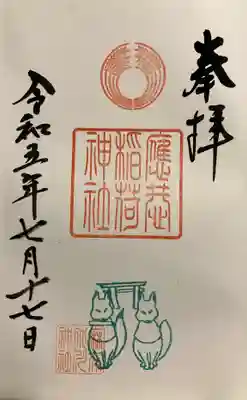 奉拝
應恭
稲荷
神社
令和五年七月十七日